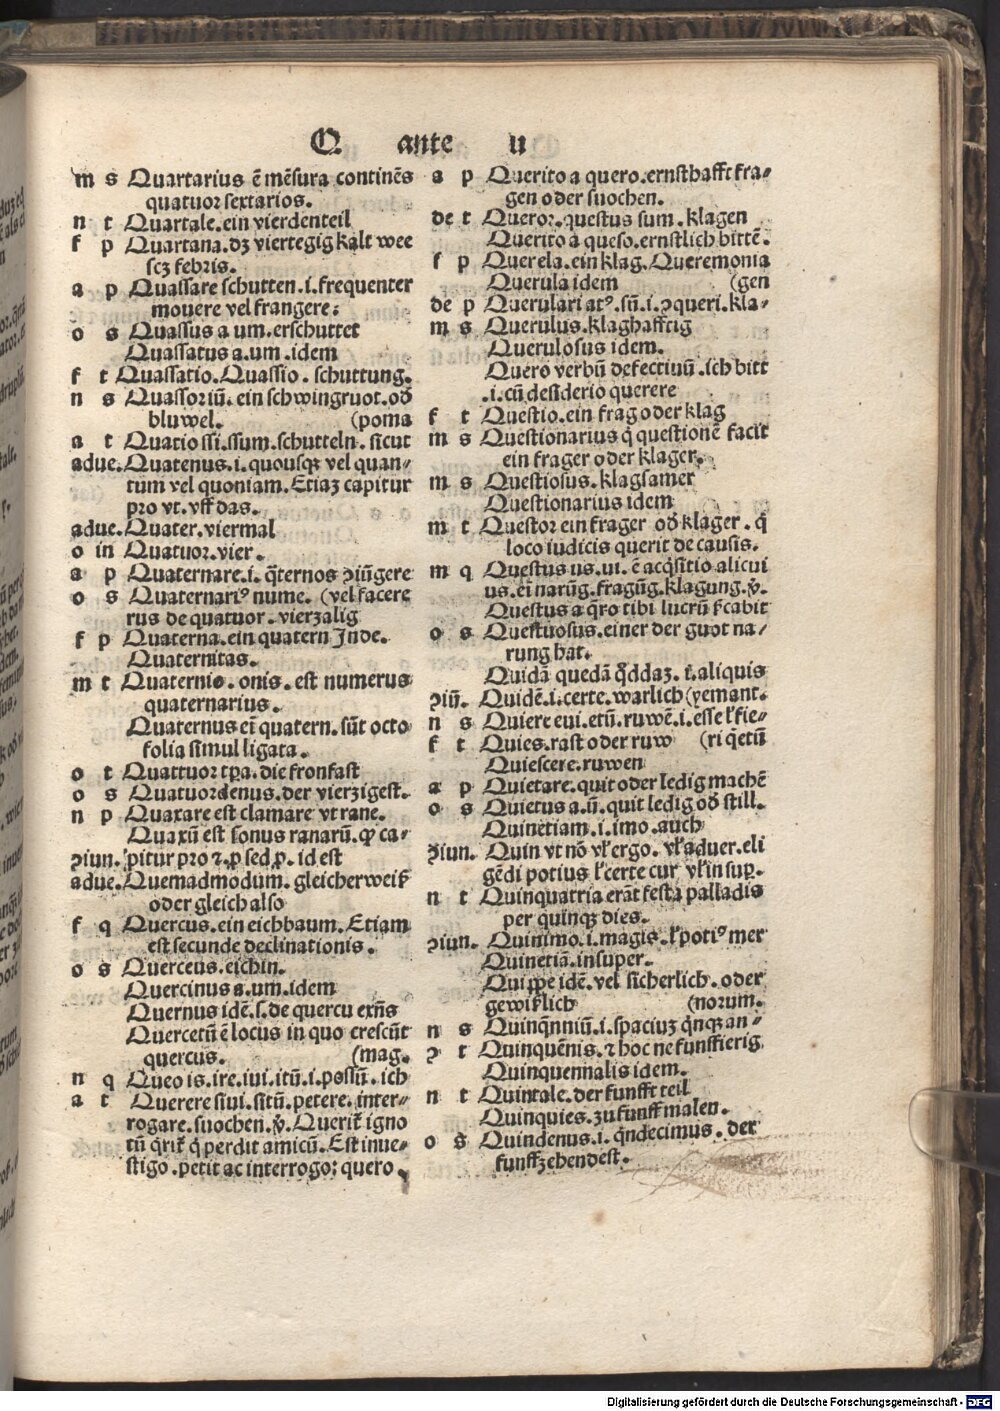 Q ante u
m s Quartarius ē mēsura continēs
quatuor sextarios.
n t Quartale.ein vierdenteil
f p Quartana.dʒ viertegig kalt wee
scʒ febris.
a p Quassare schutten.i.frequenter
mouere vel frangere:
o s Quassus a um.erschuttet
Quassatus a.um.idem
f t Quassatio.Quassio.schuttung.
n s Quassoriū.ein schwingruot.od̄
bluwel. (poma
a t Quatio ssi.ssum.schutteln.sicut
adue.Quatenus.i.quousqʒ vel quan⸗
tum vel quoniam.Etiaʒ capitur
pro vt.vff das.
adue.Quater.viermal
o in Quatuor.vier.
a p Quaternare.i.q̄ternos ꝯiūgere
o s Quaternariꝰ nume. (vel facere
rus de quatuor.vierzalig
f p Quaterna.ein quatern Inde.
Quaternitas.
m t Quaternio.onis.est numerus
quaternarius.
Quaternus eī quatern.sūt octo
folia simul ligata.
o t Quattuor tp̄a.die fronfast
o s Quatuordenus.der vierzigest.
n p Quaxare est clamare vt rane.
Quaxū est sonus ranarū.ꝙ ca⸗
ꝯiun. pitur pro ⁊.p̱ sed p̱.id est
adue.Quemadmodum.gleicherweiß
oder gleich also
f q Quercus.ein eichbaum.Etiam
est secunde declinationis.
o s Querceus.eichin.
Quercinus a.um.idem
Quernus idē.s.de quercu exn̄s
Quercetū ē locus in quo crescūt
quercus. (mag.
n q Queo is.ire.iui.itū.i.possū.ich
a t Querere siui.situ̅.petere.inter⸗
rogare.suochen.v̄.Querit̄ igno
tū q̄rit̄ q̄ perdit amicū.Est inue⸗
stigo.petit ac interrogo: quero.
a p Querito a quero.ernsthafft fra⸗
gen oder suochen.
de t Queror.questus sum.klagen
Querito a queso.ernstlich bittē.
f p Querela.ein klag.Queremonia
Querula idem (gen
de p Querulari atꝰ.sū.i.ꝯqueri.kla⸗
m s Querulus.klaghafftig
Querulosus idem.
Quero verbū defectiuū.ich bitt
.i.cū desiderio querere
f t Questio.ein frag oder klag
m s Questionarius q̄ questionē facit
ein frager oder klager.
m s Questiosus.klagsamer
Questionarius idem
m t Questor ein frager od̄ klager.q̄
loco iudicis querit de causis.
m q Questus us.ui.ē acq̄sitio alicui
us.eī narūg.fragūg.klagung.v̄.
Questus a q̄ro tibi lucrū p̄cabit
o s Questuosus.einer der guot na⸗
rung hat.
Quidā quedā q̄ddaʒ.ł.aliquis
ꝯiū. Quidē.i.certe.warlich (yemant.
n s Quiere eui.etū.ruwē.i.esse ł fie⸗
f t Quies.rast oder ruw (ri q̄etū
Quiescere.ruwen
a p Quietare.quit oder ledig machē
o s Quietus a.ū.quit ledig od̄ still.
Quinetiam.i.imo.auch
ꝯiun. Quin vt nō vł ergo.vł aduer.eli
gēdi potius ł certe cur vł insup̱.
n t Quinquatria erāt festa palladis
per quinqʒ dies.
ꝯiun. Quinimo.i.magis.ł potiꝰ mer
Quinetiā.insuper.
Quippe idē.vel sicherlich.oder
gewißlich (norum.
n s Quinqn̄niū.i.spaciuʒ q̄nqʒ an⸗
ꝯ t Quinquēnis.⁊ hoc ne funffierig
Quinquennalis idem.
n t Quintale.der funfft teil
Quinquies.zu funff malen.
o s Quindenus.i.q̄ndecimus.der
funffzehendest.
Digitalisierung gefördert durch die Deutsche Forschungsgemeinschaft - DFG